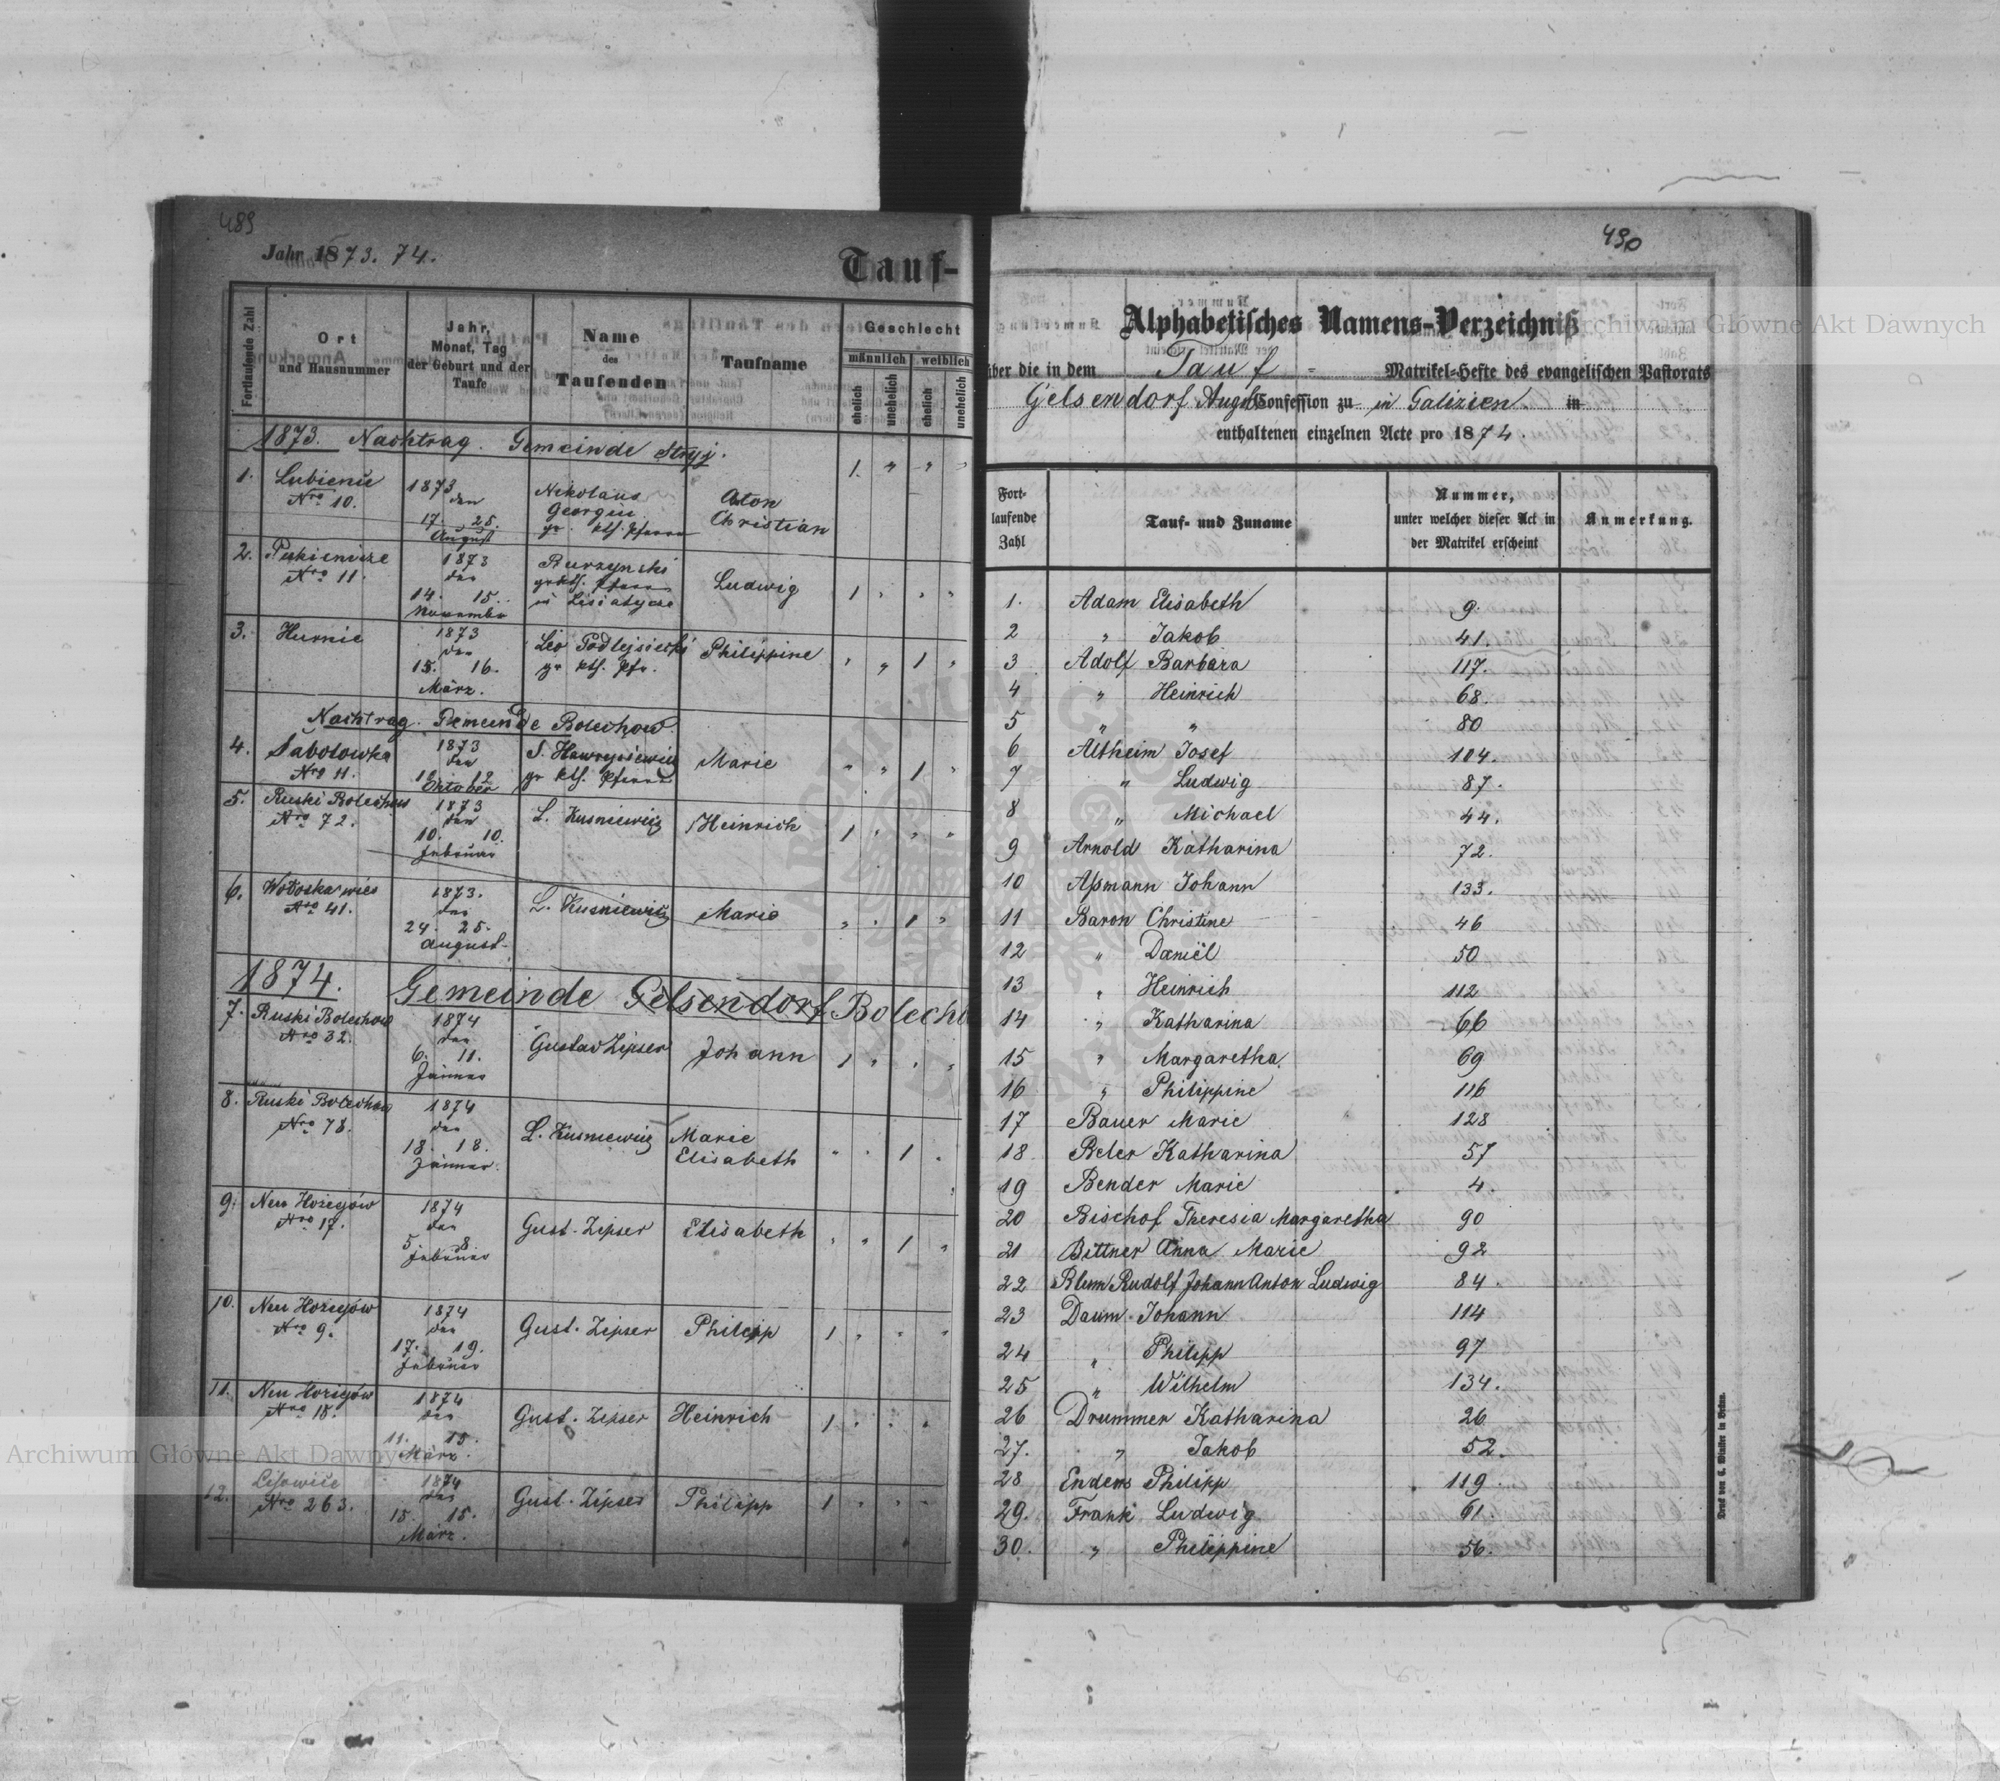 489
Jahr 1873. 74.
Tauf-
Fortlaufende Zahl
Ort
und Hausnummer
Jahr,
Monat, Tag
der Geburt und der
Taufe
Name
des
Taufenden
Taufname
Geschlecht
männlich
weiblich
ehelich
unehelich
ehelich
unehelich
1873. Nachtrag. Gemeinde Stryj.
1. Lubience
Nro 10.
1873
den
17. 25.
August
Nikolaus
Georgin
gr. kth. Pfarrer
Christian
1 " " "
2.
Nro 11.
1873
den
14. 15.
November
Burzynski
gr kth. Pfarrer
in Lisiatycze
Ludwig
1 " " "
3. Hurnie
1873
den
15. 16.
März.
Leo
gr kth. Pfr.
Philippine
" " 1 "
Nachtrag. Gemeinde Bolechow.
4. Sabotowka
Nro 11.
1873
den
12
Oktober
gr kth. Pfarrer
Marie
" " 1 "
5. Ruski Bolechow
Nro 72.
1873
den
10. 10.
Februar
L. Kusniewicz
Heinrich
1 " " "
6.
Nro 41.
1873.
den
24. 25.
August.
L. Kusniewicz
Marie
" " 1 "
1874. Gemeinde Gelsendorf Bolecho
7. Ruski Bolechow
Nro 32.
1874
den
6. 11.
Jänner
Gustav Zipser
Johann
1 " " "
8. Ruski Bolechow
Nro 78.
1874
den
18. 18.
Jänner.
L. Kusniewicz
Marie
Elisabeth
" " 1 "
9. Neu Hozegów
Nro 17.
1874
den
5. 8.
Februar
Gust. Zipser
Elisabeth
" " 1 "
10. Neu Hozegów
Nro 9.
1874
den
17. 19.
Februar
Gust. Zipser
Philipp
1 " " "
11. Neu Hozegów
Nro 18.
1874
den
11. 15.
März.
Gust. Zipser
Heinrich
1 " " "
12. Lisowice
Nro 263.
1874
den
15. 15.
März.
Gust. Zipser
Philipp
1 " " "
490
Alphabetisches Namens-Verzeichniß
über die in dem Tauf - Matrikel-Hefte des evangelischen Pastorats
Gelsendorf Augsb Confession zu in Galizien. in
enthaltenen einzelnen Acte pro 1874.
Fort-
laufende
Zahl
Tauf- und Zuname
Nummer,
unter welcher dieser Act in
der Matrikel erscheint
Anmerkung.
1. Adam Elisabeth 9.
2 " Jakob 41.
3 Adolf Barbara 117.
4 " Heinrich 68.
5 " " 80
6 Altheim Josef 104.
7 " Ludwig 87.
8 " Michael 44.
9 Arnold Katharina 72.
10 Aßmann Johann 133.
11 Baron Christine 46
12 " Daniël 50
13 " Heinrich 112
14 " Katharina 66
15 " Margaretha. 69
16 " Philippine 116
17 Bauer Marie 128
18 Beler Katharina 57
19 Bender Marie 4.
20 Bischof Theresia Margaretha 90
21 Bittner Anna Marie 92
22 Blum Rudolf Johann Anton Ludwig 84.
23 Daum Johann 114
24 " Philipp 97
25 " Wilhelm 134.
26 Drummer Katharina 26
27. " Jakob 52.
28 Enders Philipp 119.
29. Frank Ludwig 61.
30. " Philippine 56.
Druck von C. Winiker in Brünn.
Archiwum Główne Akt Dawnych
Archiwum Główne Akt Dawnych